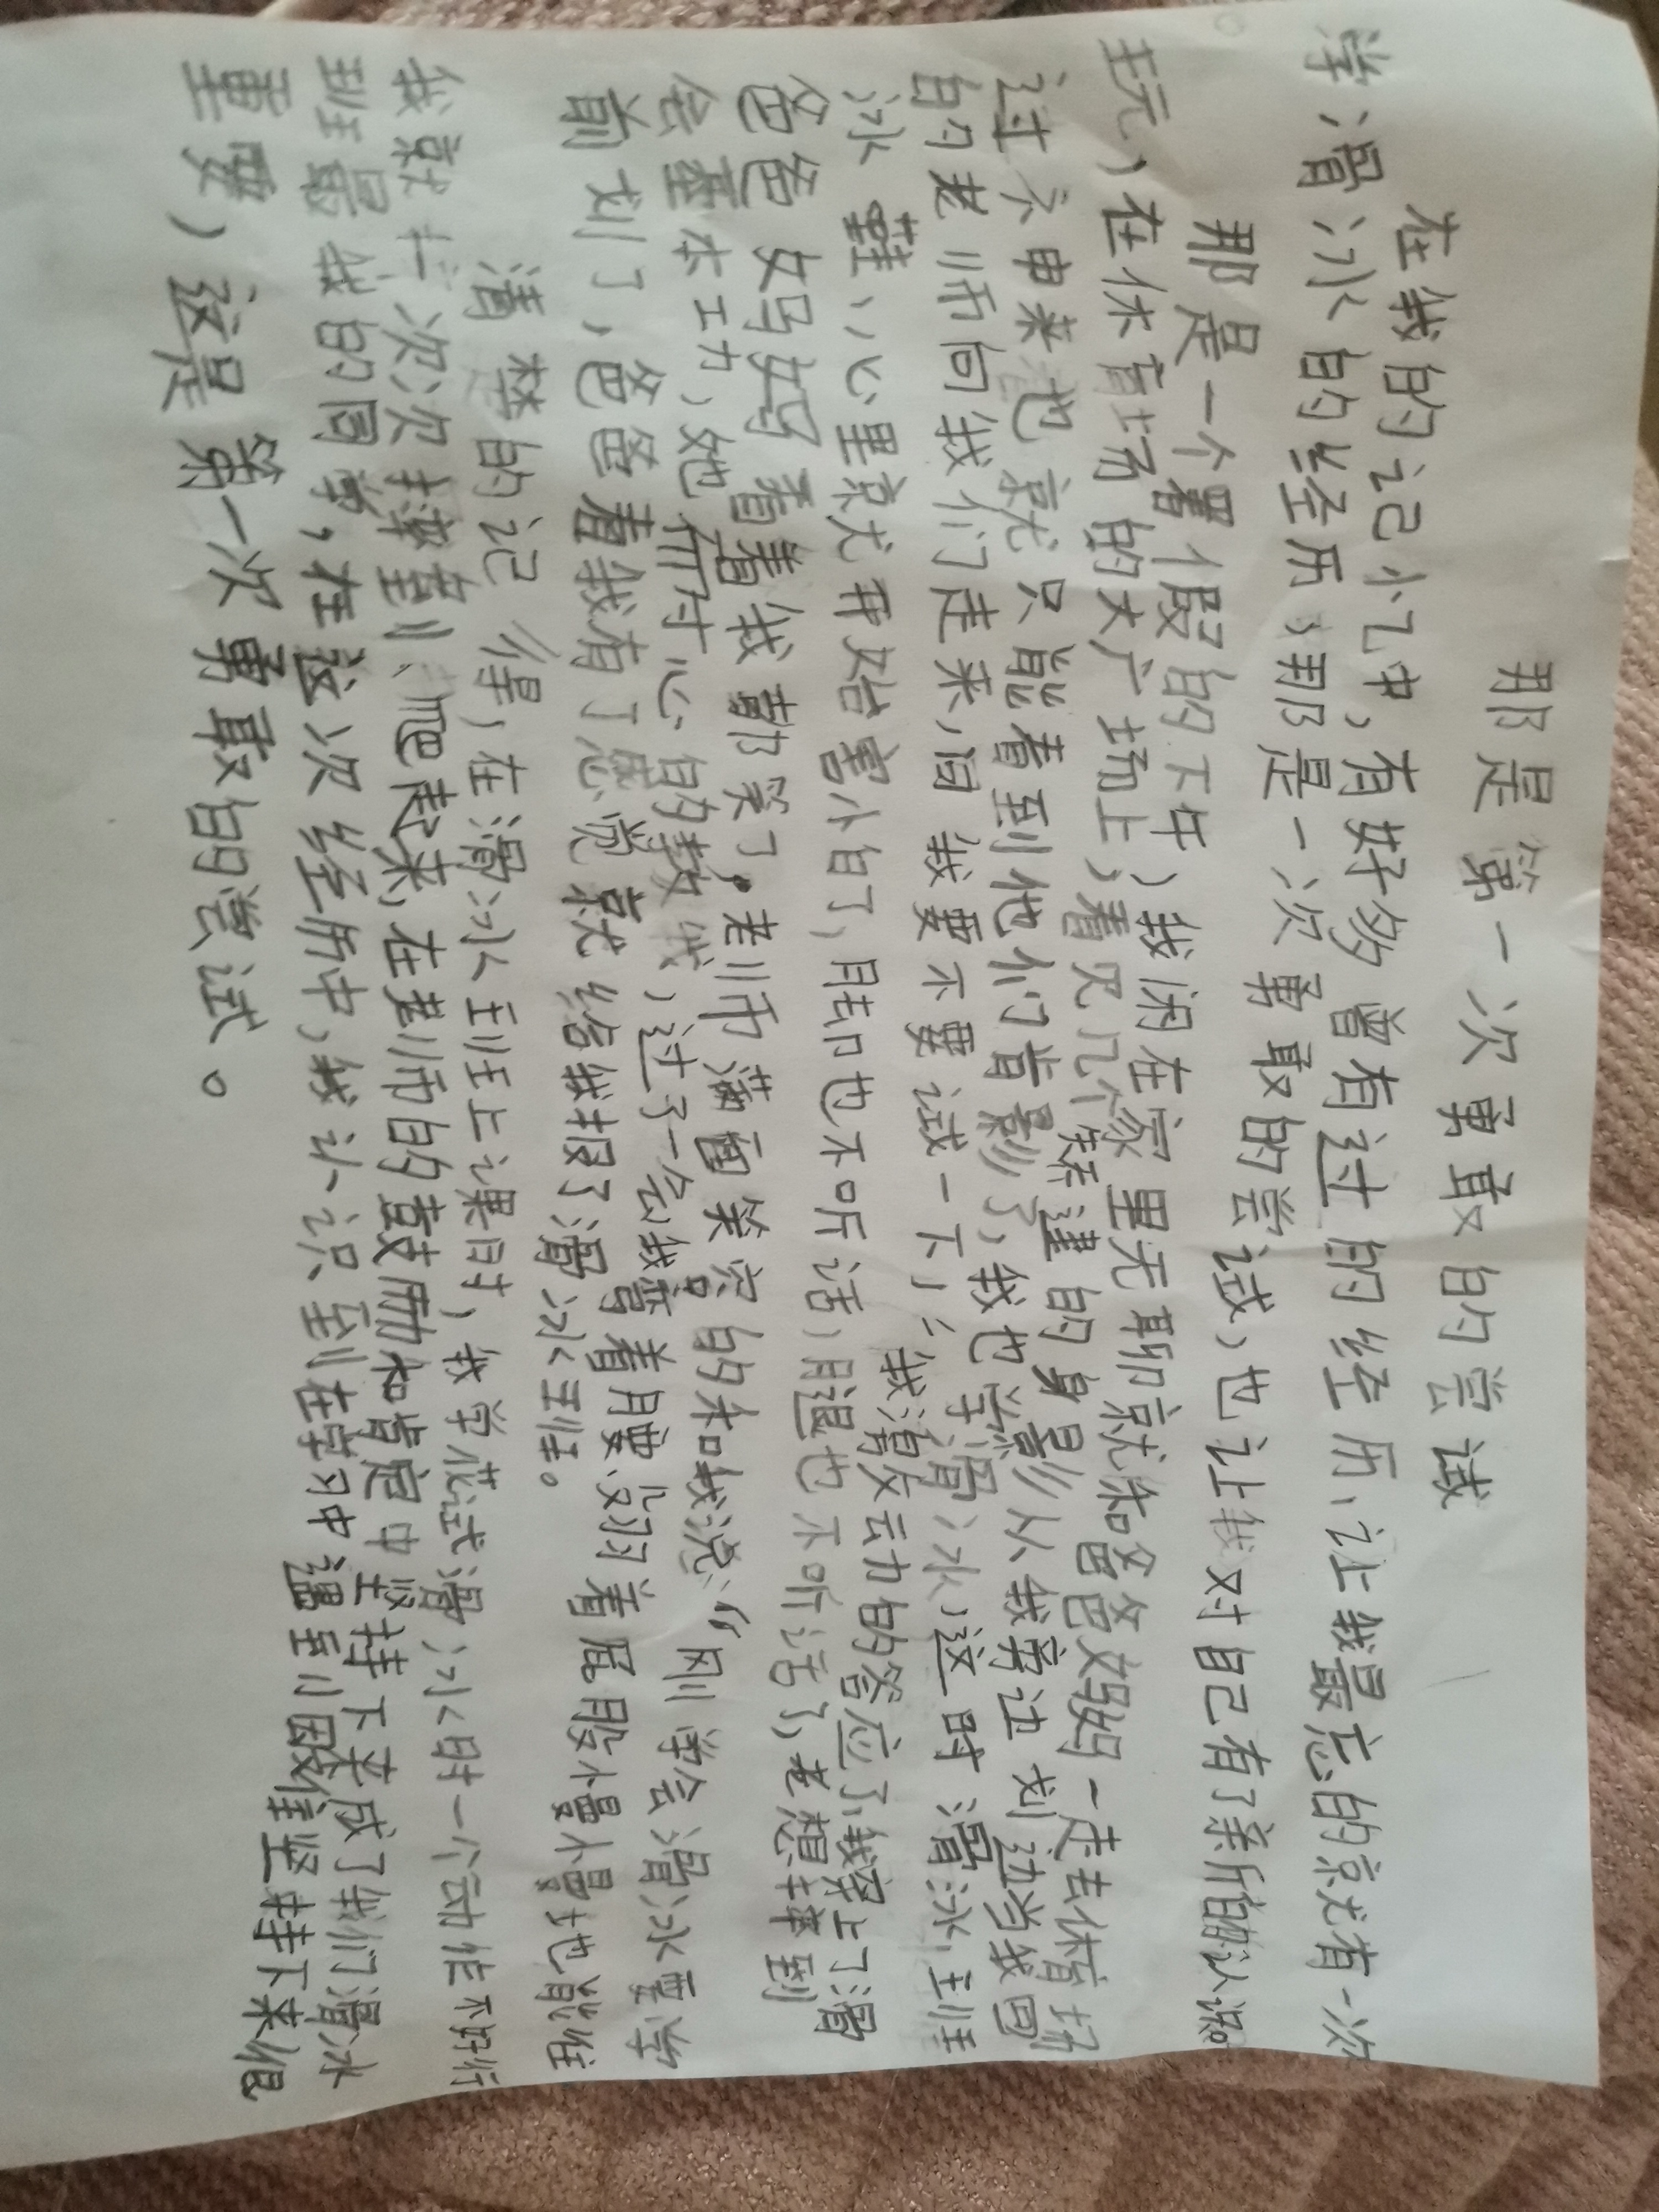 那是第一次勇敢的尝试
在我的记忆中，有好多曾有过的经历，让我最忘的就有一次
学滑冰的经历，那是一次勇敢的尝试，也让我对自己有了新的认识。
那是一个暑假的下午，我闲在家里无聊就和爸爸妈妈一走去体育场
玩，在体育场的大广场上，看见几个矫健的身影从我旁边划过当我回
过神来也就只能看到他们背影了，我也学滑冰，这时滑冰班
的老师向我们走来，问我要不要试一下，"我激动的答应了，我穿上了滑
冰鞋，心里就开始害怕了，脚也不听话，腿也不听话了，老想摔到
爸爸妈妈看着我都笑了，老师满面笑容的和我说："刚学会滑冰要学
会基本功，她耐心的教我，过了一会我弯着腰，双脚着屁股慢慢地能往
前划了，爸爸看我有了感觉就给我报了滑冰班。
清楚的记得，在滑冰班上课时，我学花式滑冰时一个动作不好行
我就十次次摔到、爬起来，在老师的鼓励和肯定中坚持下来成了我们滑冰
班最 的同学，在这次经历中，我认识到在学习中遇到困难坚持下来很
重要，这是第一次勇敢的尝试。